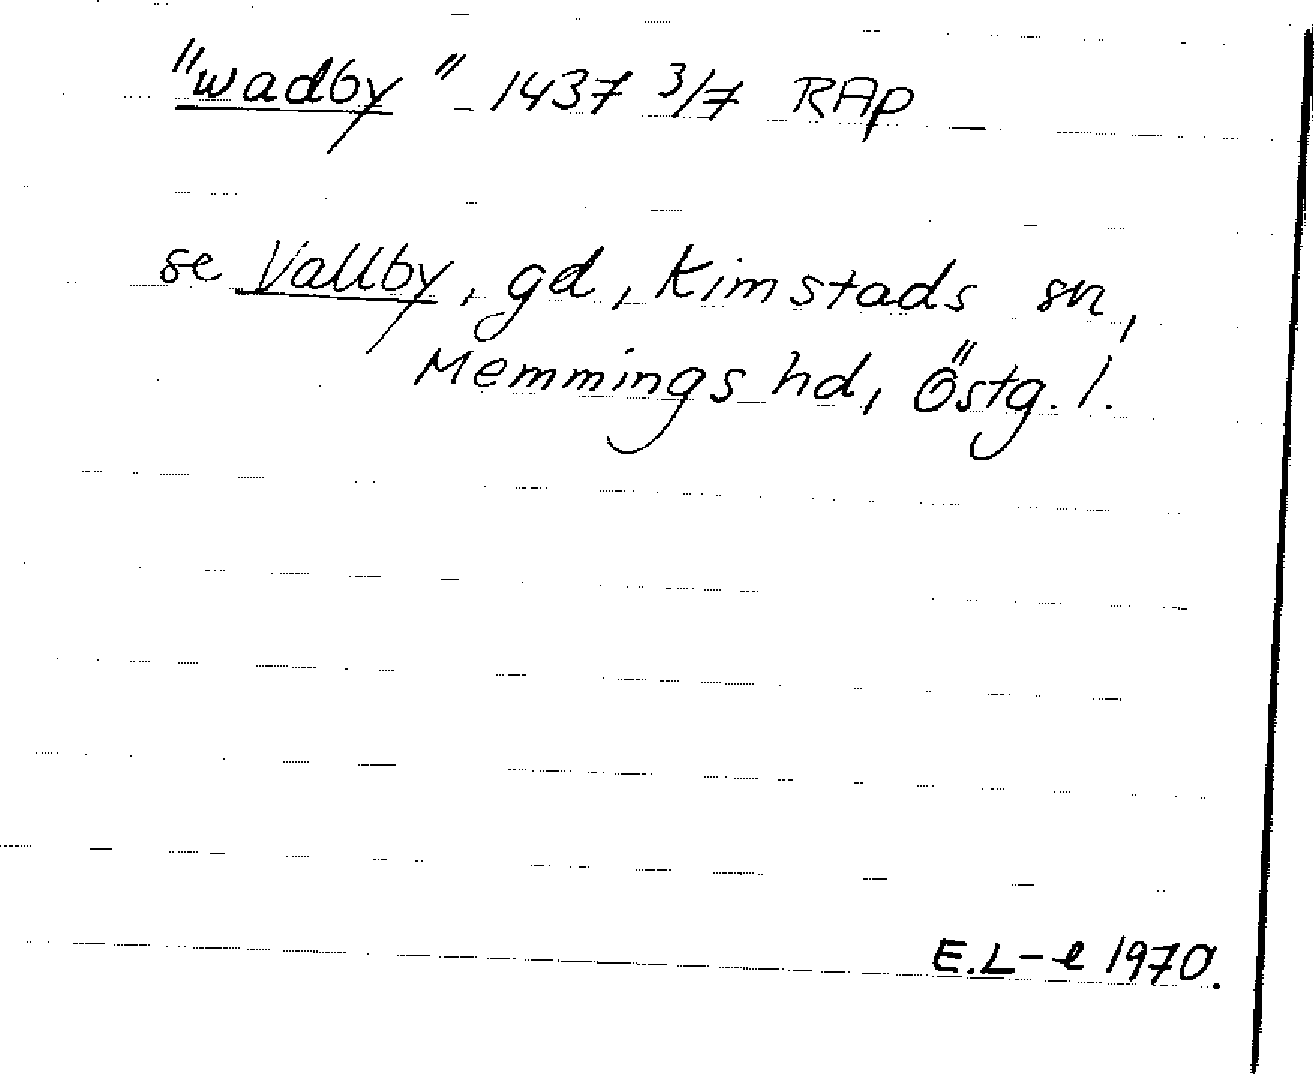 "wadby" 1437 3/7 RAp
se Vallby, gd, Kimstads sn,
Memmings hd, Östg. l.
E.L-e 1970.